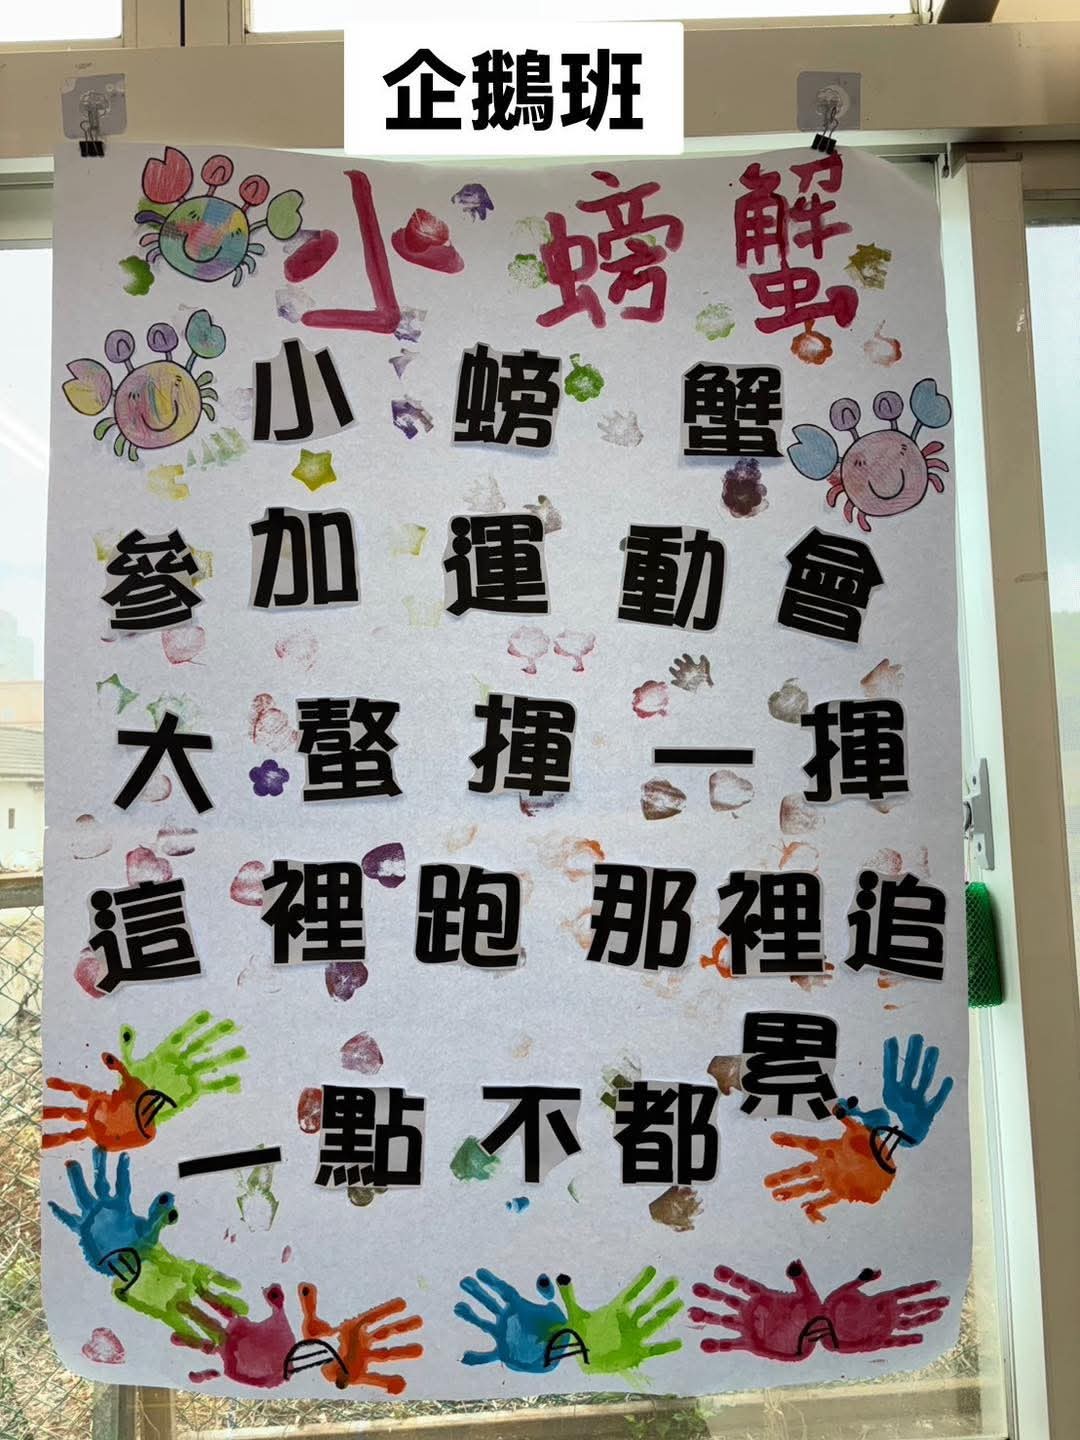 企鵝班
小螃蟹
小螃蟹
參加運動會
大螯揮一揮
這裡跑那裡追
一點不都累